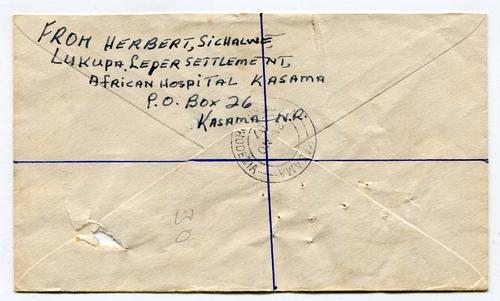 FROM HERBERT, SICHALWE
LUKUPA. LEPER SETTLEMENT,
AFRICAN HOSPITAL KASAMA
P.O. BOX 26
KASAMA N.R.
KASAMA
RHODESIA
30